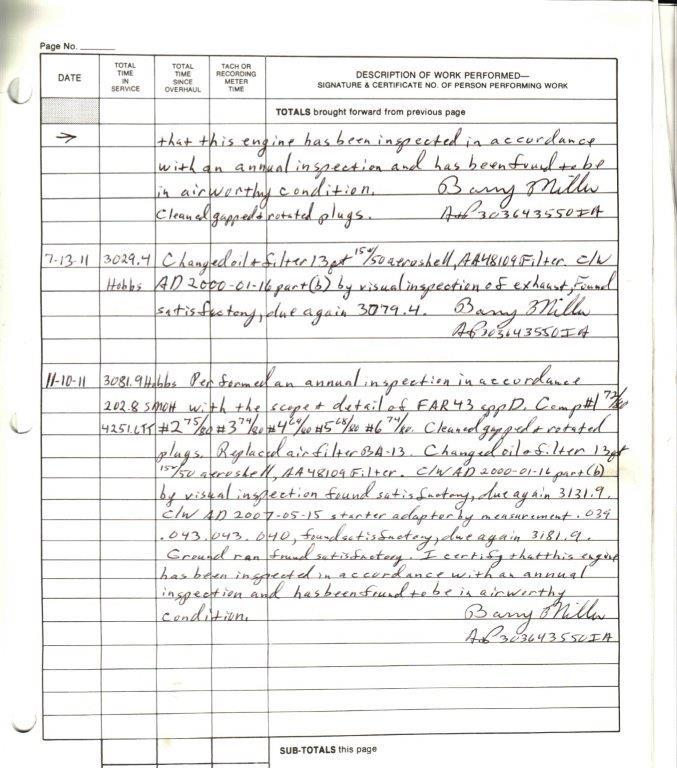 Page No.
DATE
TOTAL TIME IN SERVICE
TOTAL TIME SINCE OVERHAUL
TACH OR RECORDING METER TIME
DESCRIPTION OF WORK PERFORMED—
SIGNATURE & CERTIFICATE NO. OF PERSON PERFORMING WORK
TOTALS brought forward from previous page
→ that this engine has been inspected in accordance
with an annual inspection and has been found to be
in airworthy condition. Barry Miller
Cleaned gapped & rotated plugs. A+P 303643550IA
7-13-11 3029.4 Changed oil & filter 13qt 15w/50 aeroshell, AA48109 Filter. C/W
Hobbs AD 2000-01-16 part(b) by visual inspection of exhaust, Found
satisfactory, due again 3079.4. Barry Miller
A+P 303643550IA
11-10-11 3081.9 Hobbs Performed an annual inspection in accordance
202.8 SMOH with the scope & detail of FAR 43 app D. Comp #1 72/80
4251.6TT #2 75/80 #3 74/80 #4 69/80 #5 68/80 #6 74/80. Cleaned gapped & rotated
plugs. Replaced air filter BA-13. Changed oil & filter 13qt
15w/50 aeroshell, AA48109 Filter. C/W AD 2000-01-16 part(b)
by visual inspection found satisfactory, due again 3131.9.
C/W AD 2007-05-15 starter adaptor by measurement .039
.043 .043 .040, found satisfactory, due again 3181.9.
Ground ran found satisfactory. I certify that this engine
has been inspected in accordance with an annual
inspection and has been found to be in airworthy
condition. Barry Miller
A+P 303643550IA
SUB-TOTALS this page